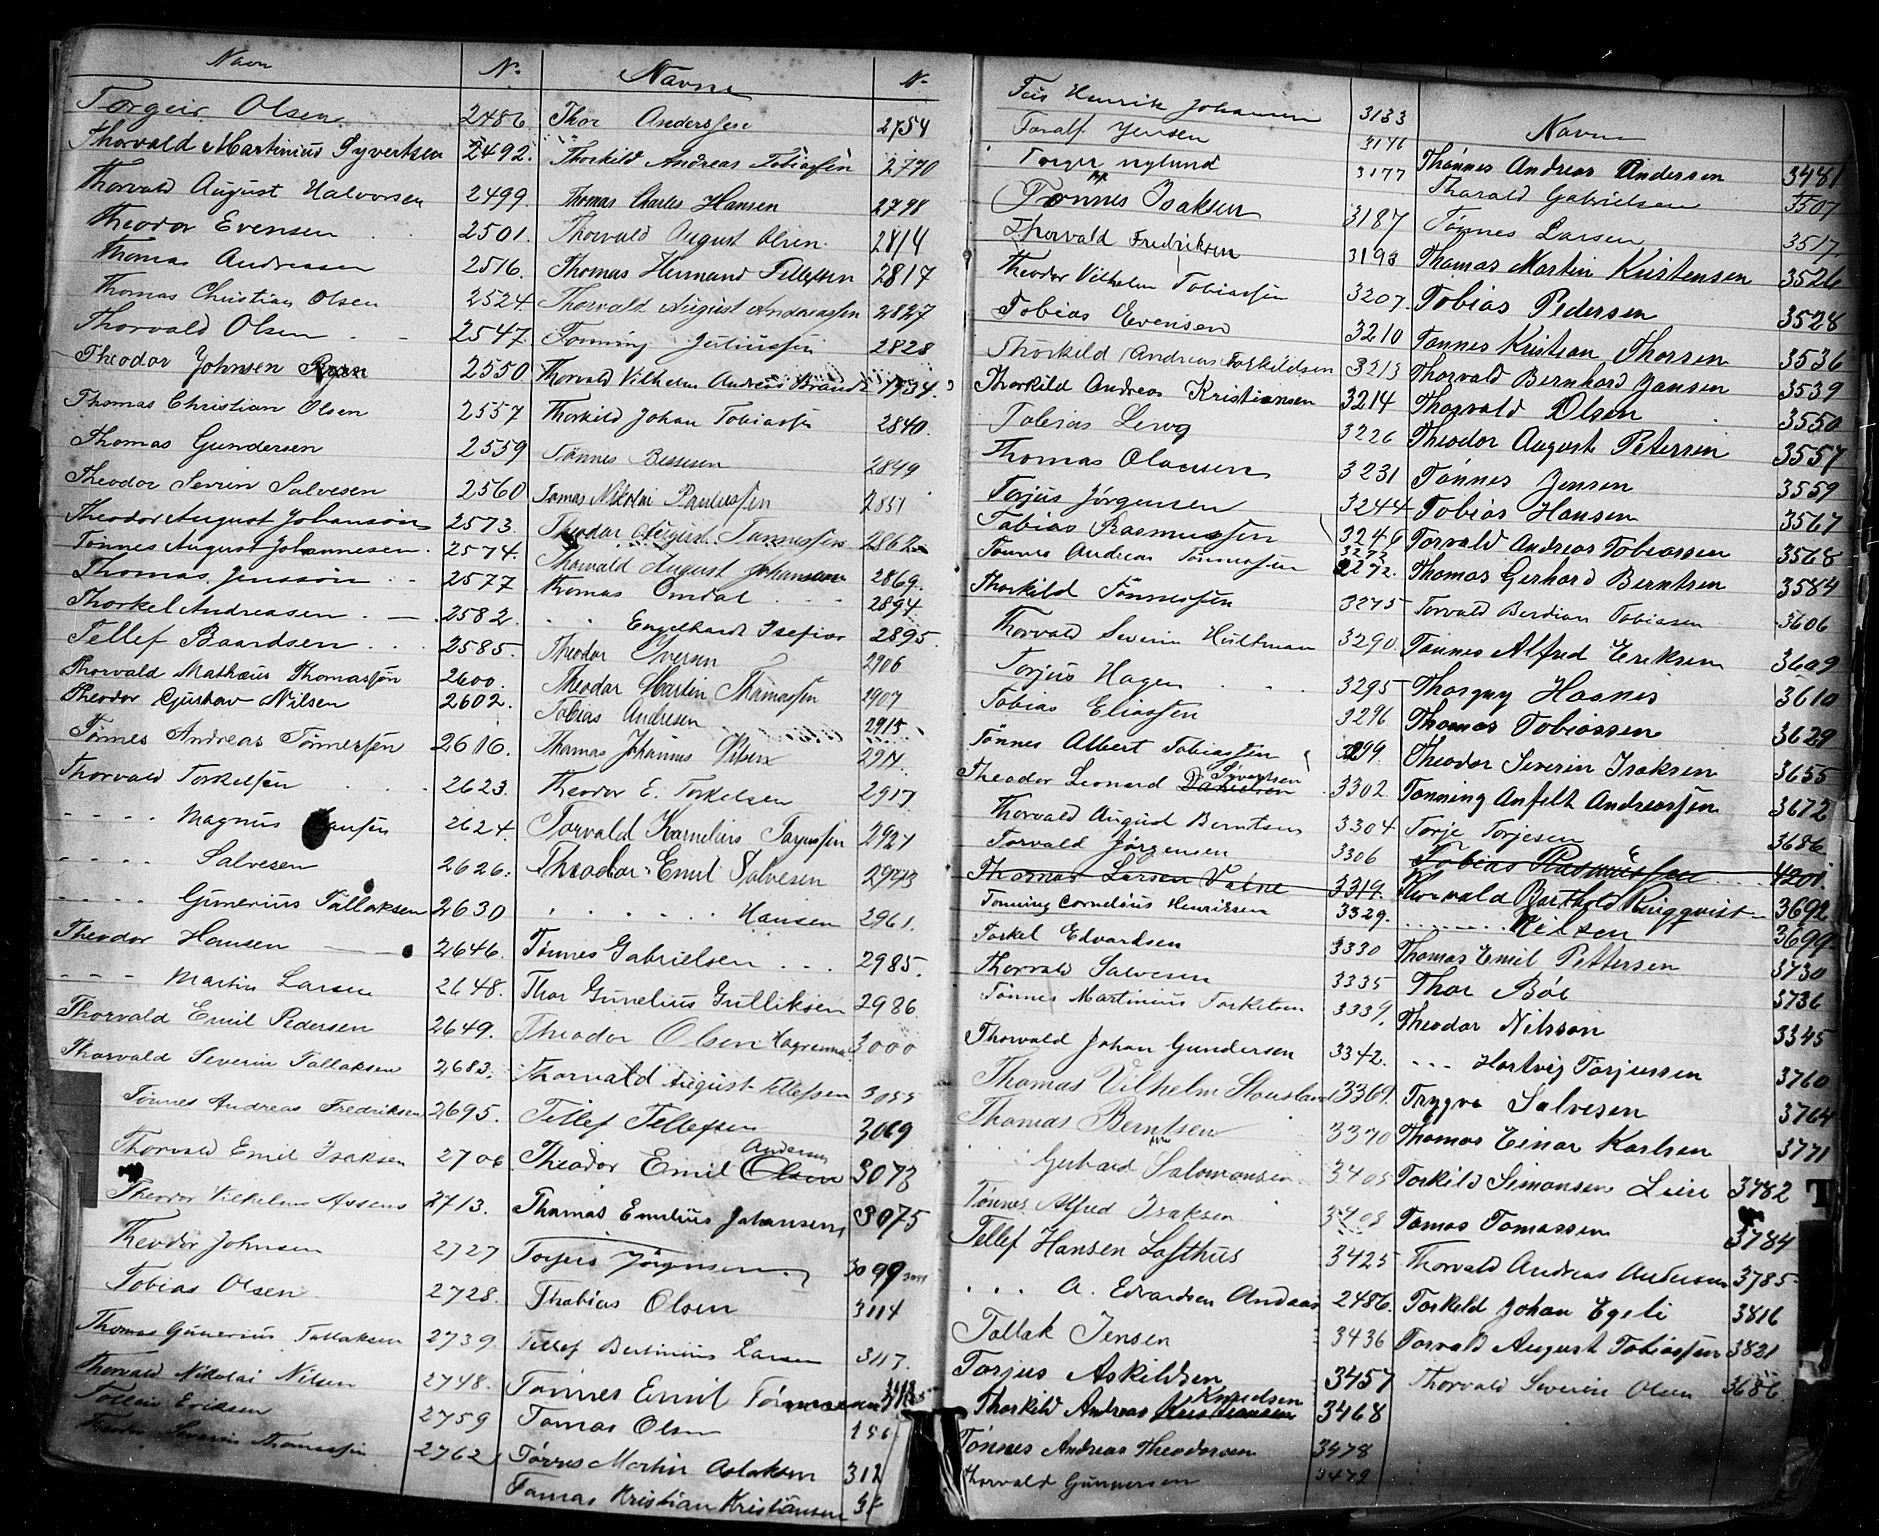 Navn No
Torgeir Olsen 2486.
Thorvald Martinius Syvertsen 2492.
Thorvald August Halvorsen 2499
Theodor Evensen 2501.
Thomas Andreasen 2516.
Thomas Christian Olsen 2524.
Thorvald Olsen 2547.
Theodor Johnsen Ryan 2550
Thomas Christian Olsen 2557
Thomas Gundersen 2559
Theodor Severin Salvesen 2560
Theodor August Johanson 2573.
Tønnes August Johannesen. 2574.
Thomas Jenssøn 2577
Thorkel Andreasen 2582.
Tellef Baardsen 2585.
Thorvald Mathæus Thomassøn 2600.
Theodor Gustav Nilsen 2602.
Tønnes Andreas Tønnessen 2616.
Thorvald Torkelsen 2623.
- - - - Magnus Hansen 2624.
- - - - Salvesen 2626.
- - - - Gunerius Tallaksen 2630
Theodor Hansen 2646.
- - - Martin Larsen 2648.
Thorvald Emil Pedersen 2649.
Thorvald Severin Tallaksen 2683.
Tønnes Andreas Fredriksen 2695.
Thorvald Emil Isaksen 2706
Theodor Vilhelm Assens 2713.
Theodor Johnsen 2727
Tobias Olsen 2728.
Thomas Gunerius Tallaksen 2739
Thorvald Nikolai Nilsen 2748.
Eriksen 2759
Severin 2762
Navne No
Thor Anderssen 2754
Thorkild Andreas Tobiassen 2770
Thomas Charles Hansen 2798
Thorvald August Olsen. 2814
Thomas Hermand Tellefsen 2817
Thorvald August Andreassen 2827
Tønning Juliussen 2828
Thorvald Vilhelm Andreas Brandt
Thorkild Johan Tobiassen 2840.
Tønnes Bessesen 2849
Tomas Nikolai Paulussen 2851
Theodor August Tønnessen 2862
Thorvald August Johansen 2869.
Thomas Omdal 2894
. . Engelhardt Isefiær 2895.
Theodor Iversen 2906
Theodor Martin Thomassen 2907
Tobias Andresen 2915
Thomas Johannes Nilsen
Theodor E. Torkelsen 2917
Torvald Kornelius Torjussen 2927
Theodor Emil Salvesen 2943
. . . . . . Hansen 2961.
Tønnes Gabrielsen . . . 2985.
Thor Gunelius Gulliksen 2986
Theodor Olsen 3000
Thorvald August Tellefsen 3055
Tellef Tellefsen 3069
Andersen
Theodor Emil Olsen 3073
Thomas Emilius Johansen, 3075
Torjus Jørgensen 3099
Thobias Olsen 3114
Tellef Bertinius Larsen 3117.
Tønnes Emil
Tomas Olsen
Tørres Martin Aslaksen 312
Tomas Kristian Kristiansen
Teis Henrik Johansen 3133
Toralf Jensen 3146
Torger Nylund 3177
Tønnes Isaksen 3187
Thorvald Fredriksen 3193
Theodor Vilhelm Tobiassen 3207.
Tobias Evensen 3210
Thorkild Andreas Torkildsen 3213
Thorkild Andreas Kristiansen 3214
Tobias Lervg 3226
Thomas Olausen 3231
Torjus Jørgensen 3244
Tobias Rasmussen 3246
Tønnes Andreas Tønnessen 3272.
Thorkild Tønnessen 3275
Thorvald Severin Hultman 3290.
Torjus Hagen . . . 3295
Tobias Eliassen 3296
Tønnes Albert Tobiassen 3299.
Sivertsen
Theodor Leonard Danielsen 3302.
Thorvald August Berntsen 3304
Torvald Jørgensen 3306
Thomas Larsen Valne 3319.
Tønning Cornelius Henriksen 3329.
Torkel Edvardsen 3330
Thorvald Salvesen 3335
Tønnes Martinius Torkelsen 3339.
Thorvald Johan Gundersen 3342.
Thomas Vilhelm Stausland 3369.
Thomas Berntsen 3370
Gerhard Salomonsen 3405
Tønnes Alfred Isaksen 3408
Tellef Hansen Lofthus 3425
. . . A. Edvardsen Andaas 2486.
Tallak Jensen 3436
Torjus Askildsen 3457
Knudsen
Thorkild Andreas Kristiansen 3468
Tønnes Andreas Theodorsen 3478
Thorvald Gunnersen 3479
Navne
Thønnes Andreas Andersen 3481
Tharald Gabrielsen 3507
Tønnes Larsen 3517
Thomas Martin Kristensen 3526
Tobias Pedersen 3528
Tønnes Kristian Thorsen 3536
Thorvald Bernhard Jansen 3539
Thorvald Olsen 3550
Theodor August Petersen 3557
Tønnes Jensen 3559
Tobias Hansen 3567
Torvald Andreas Tobiassen 3568
Thomas Gerhard Berntsen 3584
Torvald Berdian Tobiassen 3606
Tønnes Alfred Eriksen 3609
Thorguy Haanes 3610
Thomas Tobiassen 3629
Theodor Severin Isaksen 3655
Tønning Anfelt Andreassen 3672
Torje Torjesen 3686
Tobias Rasmussen 4201.
Thorvald Barthold Ringqvist 3692
. . . . . . Nilsen 3699
Thomas Emil Pettersen 3730
Thor Bøe 3736
Theodor Nilsson 3345
- - - Hartvig Torjussen 3760
Trygve Salvesen 3764
Thomas Einar Karlsen 3771
Torkild Simonsen Leire 3782
T
Tomas Tomassen 3784
Thorvald Andreas Andersen 3785
Torkild Johan Egeli 3816
Torvald August Tobiassen 3821
Thorvald Severin Olsen 3686